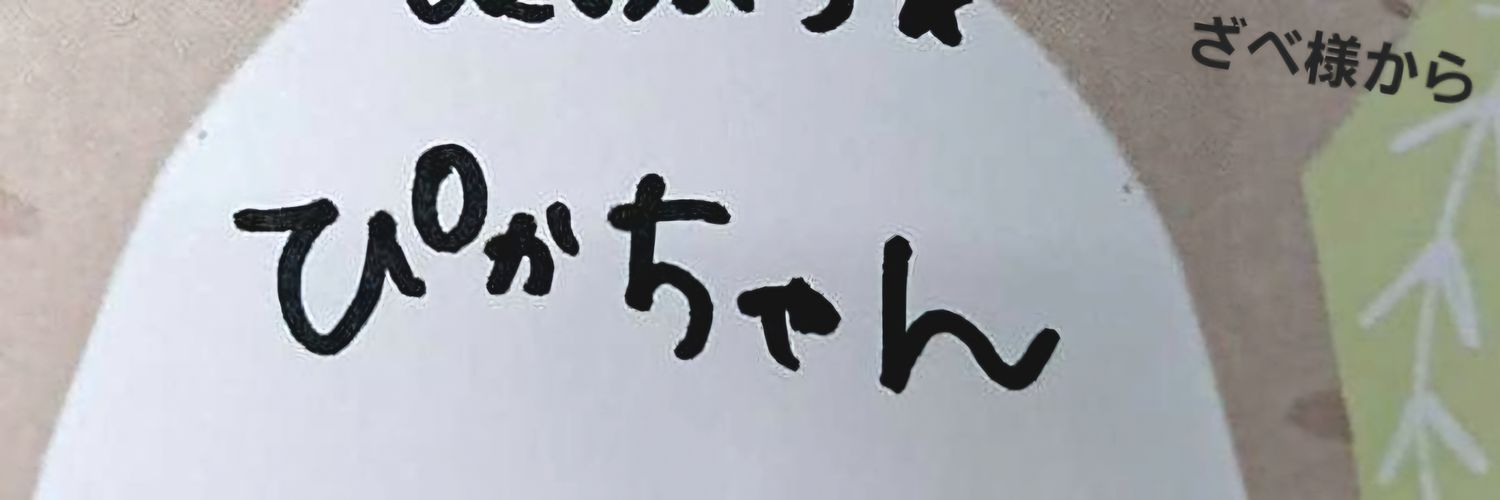 ざべ様から
ぴかちゃん